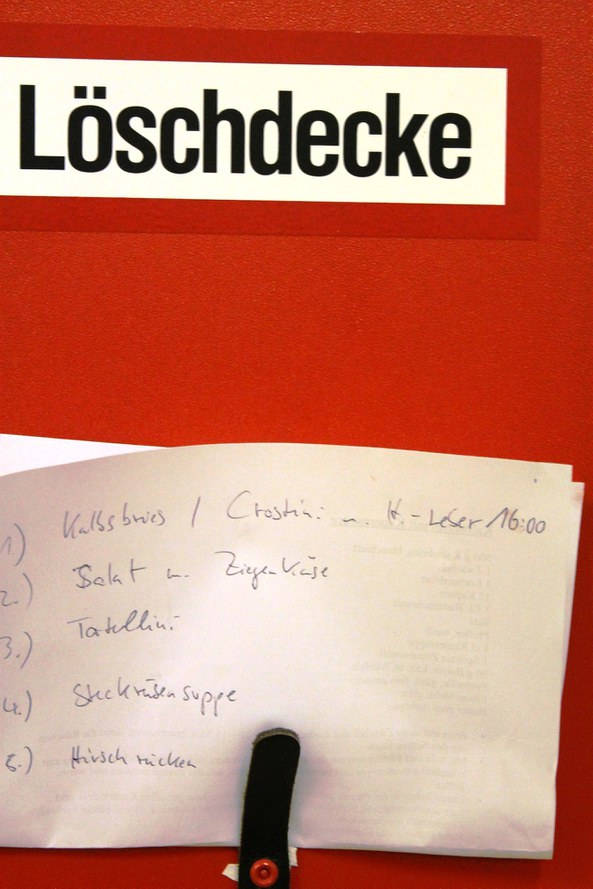 Löschdecke
1) Kalbsbries / Crostini m. H.-Leber 16:00
2.) Salat m. Ziegenkäse
3.) Tortellini
4.) Steckrübensuppe
5.) Hirschrücken